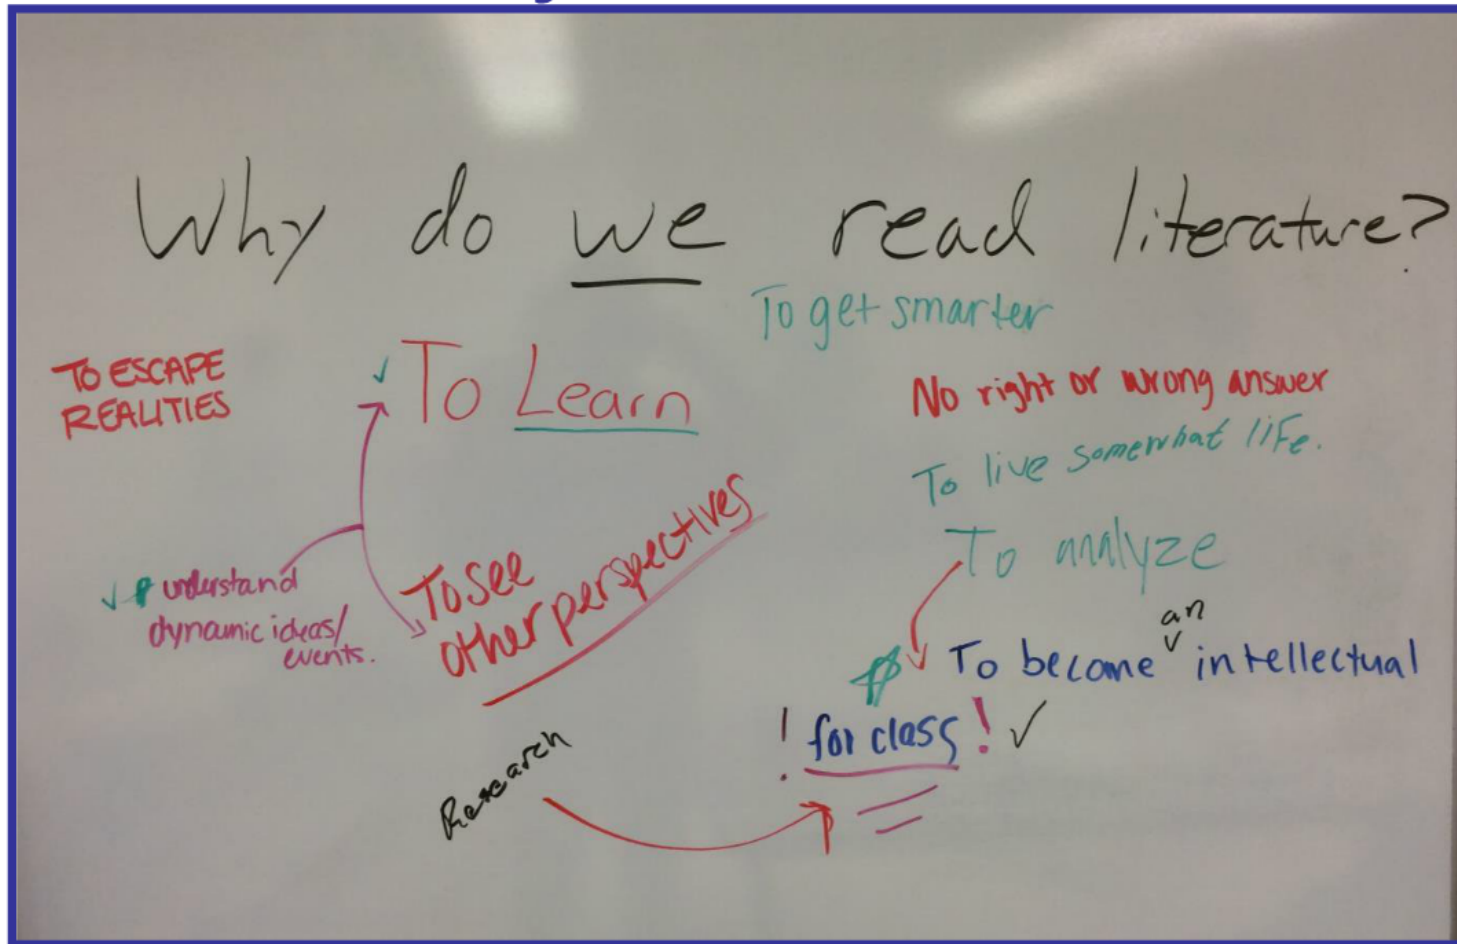 Why do we read literature?
To get smarter
TO ESCAPE
REALITIES
To Learn
No right or wrong answer
To live somewhat life.
To analyze
understand
dynamic ideas/
events.
To see
other perspectives
an
To become intellectual
! for class !
Research